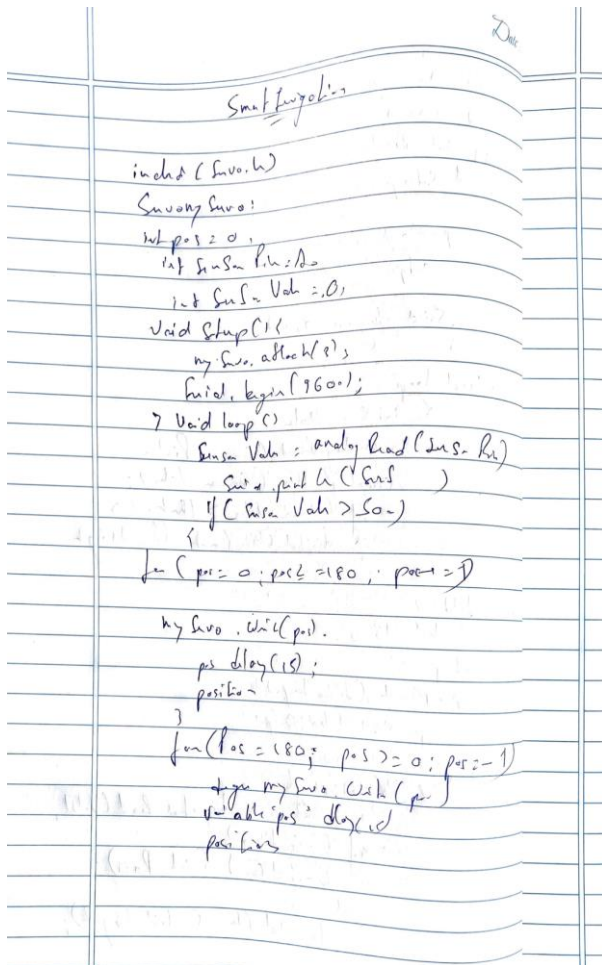 Date
Smart Irrigation
include (Servo.h)
Servo my Servo;
int pos = 0;
int Sensor Pin = A0
int Sensor Value = 0;
Void Setup() {
my Servo. attach(8);
Serial. begin(9600);
} Void loop ()
Sensor Value = analog Read (Sensor Pin)
Serial print ln (Sens )
if ( Sensor Value > 500)
{
for (pos = 0 ; pos <=180 ; pos+ = 1)
my Servo . Write(pos).
pos delay(15);
position
}
for (Pos = 180; pos >= 0; pos = -1)
my Servo Write (pos)
variable 'pos' delay(15
position